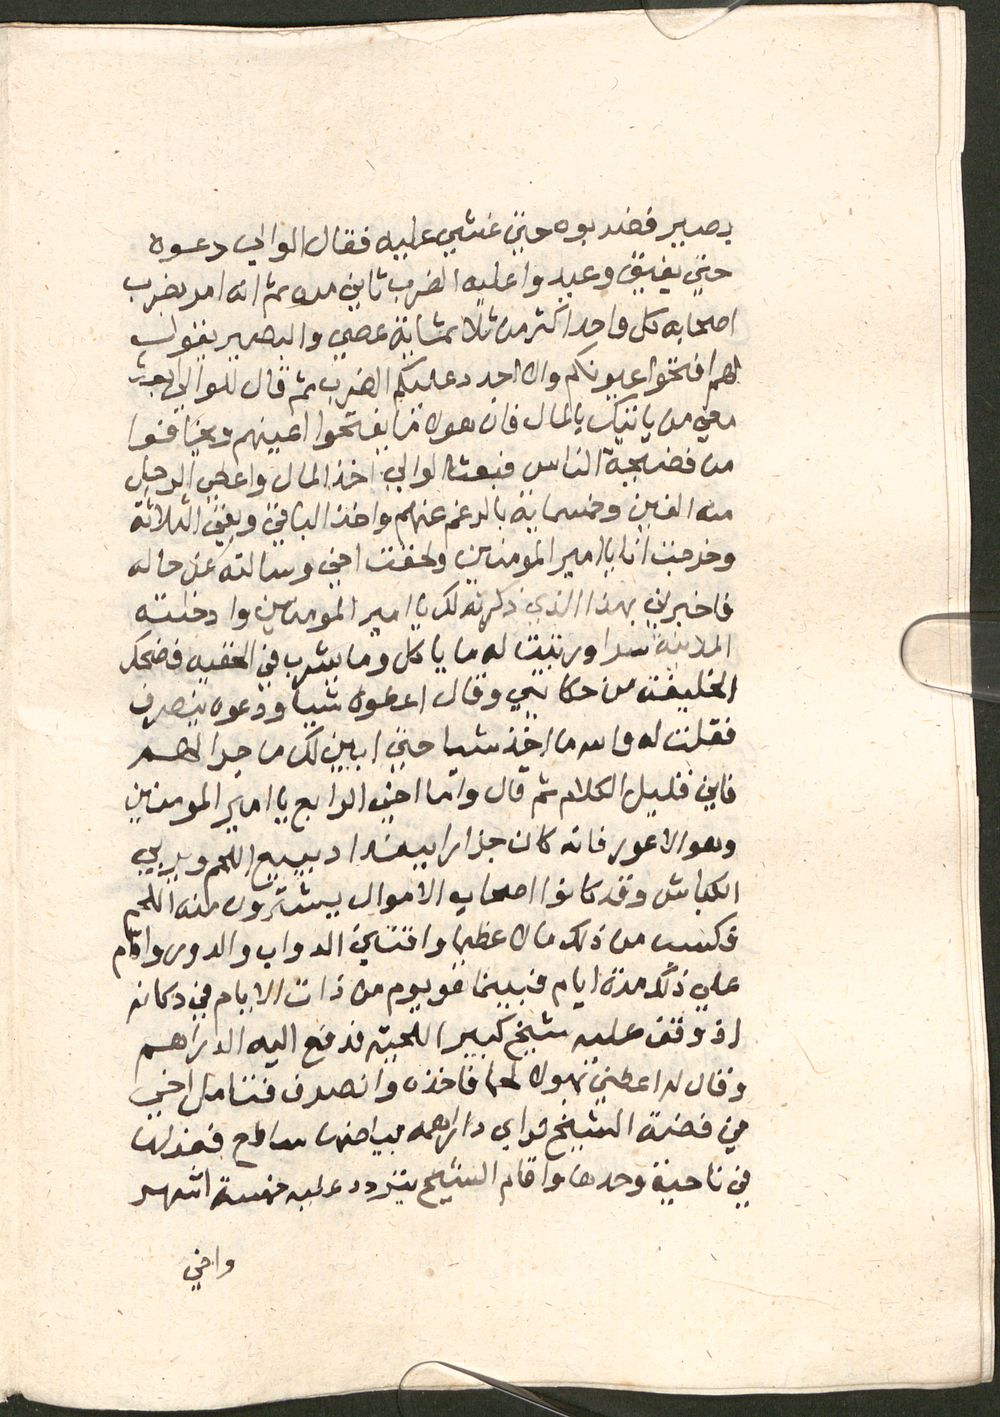 بصير فضربوه حتي غشي عليه فقال الوالي دعوه
حتي يفيق وعيدوا عليه الضرب ثاني مره ثم انه امر بضرب
اصحابه كل واحد اكثر من ثلاثماية عصي والبصير يقول
لهم افتحوا عيونكم والا اجدد عليكم الضرب ثم قال للوالي ابعث
معي من ياتيك بالمال فان هولا ما يفتحوا اعينهم ويخافوا
من فضيحة الناس فبعث الوالي اخذ المال واعطي الرجل
منه الفين وخمسماية بالرغم عنهم واخذ الباقي وبقي الثلاثة
وخرجت انا يا امير المومنين ولحقت اخي وسالته عن حاله
فاخبرني بهذا الذي ذكرته لك يا امير المومنين وادخلته
المدينة سرا ورتبت له ما ياكل وما يشرب في الخفيه فضحك
الخليفة من حكايتي وقال اعطوه شيا ودعوه ينصرف
فقلت له والله ما اخذ شيا حتي ابين لك ما جرا لهم
فاني قليل الكلام ثم قال واما اخي الرابع يا امير المومنين
وهو الاعور فانه كان جزارا ببغداد يبيع اللحم ويربي
الكباش وقد كانوا اصحاب الاموال يشترون منه اللحم
فكسب من ذلك مالا عظيما واقتني الدواب والدور واقام
علي ذلك مدة ايام فبينما هو يوم من ذات الايام في دكانه
اذ وقف عليه شيخ كبير اللحية فدفع اليه الدراهم
وقال له اعطني بهولا لحما فاخذه وانصرف فتامل اخي
في فضة الشيخ فراي دراهمه بياضها ساطع فعزلها
في ناحية وحدها واقام الشيخ يتردد عليه خمسة اشهر
واخي